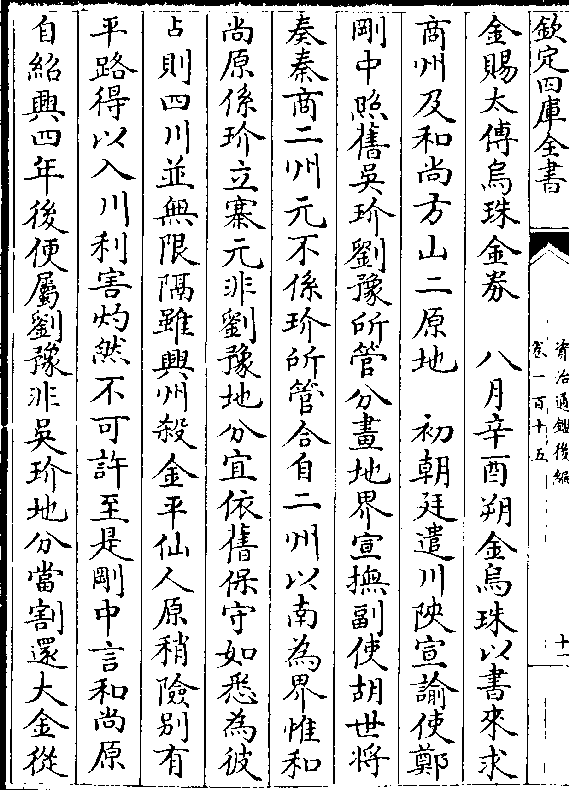 欽定四庫全書
資治通鑑後編
卷一百十五
十一
金賜太傅烏珠金劵　八月辛酉朔金烏珠以書來求
商州及和尚方山二原地　初朝廷遣川陜宣諭使鄭
剛中照舊吳玠劉豫所管分畫地界宣撫副使胡世将
奏秦商二州元不係玠所管合自二州以南為界惟和
尚原係玠立寨元非劉豫地分宜依舊保守如悉為彼
占則四川並無限隔雖興州殺金平仙人原稍險别有
平路得以入川利害灼然不可許至是剛中言和尚原
自紹興四年後便屬劉豫非吳玠地分當割還大金從